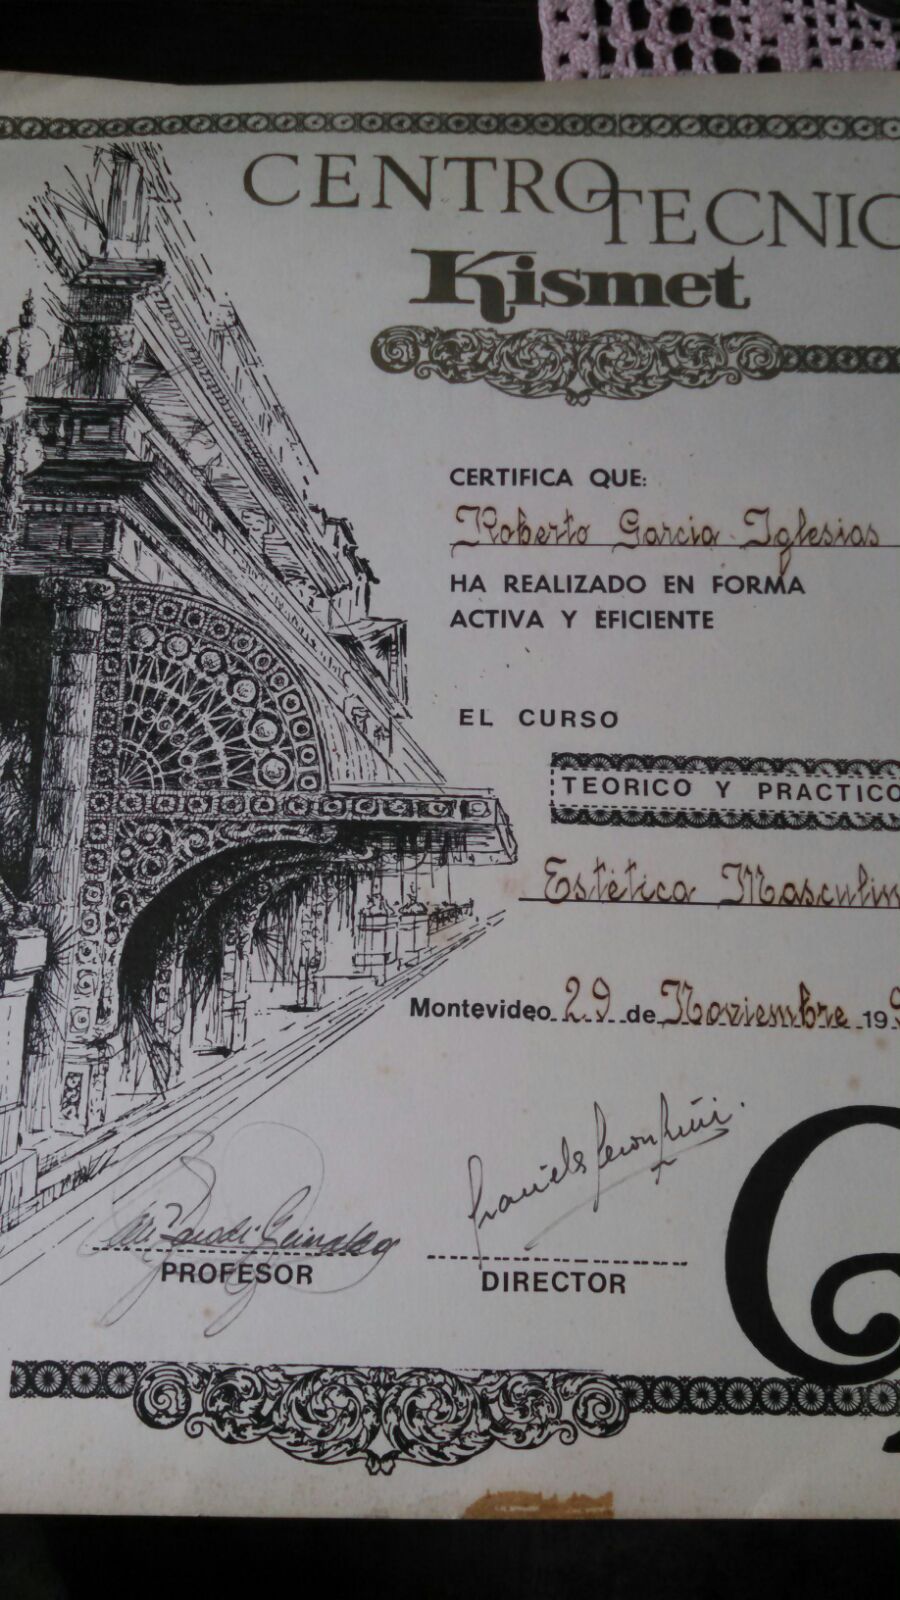 CENTRO TECNIC
Kismet
CERTIFICA QUE:
Roberto Garcia Iglesias
HA REALIZADO EN FORMA
ACTIVA Y EFICIENTE
EL CURSO
TEORICO Y PRACTICO
Estética Masculin
Montevideo 29 de Noviembre 19
PROFESOR
DIRECTOR